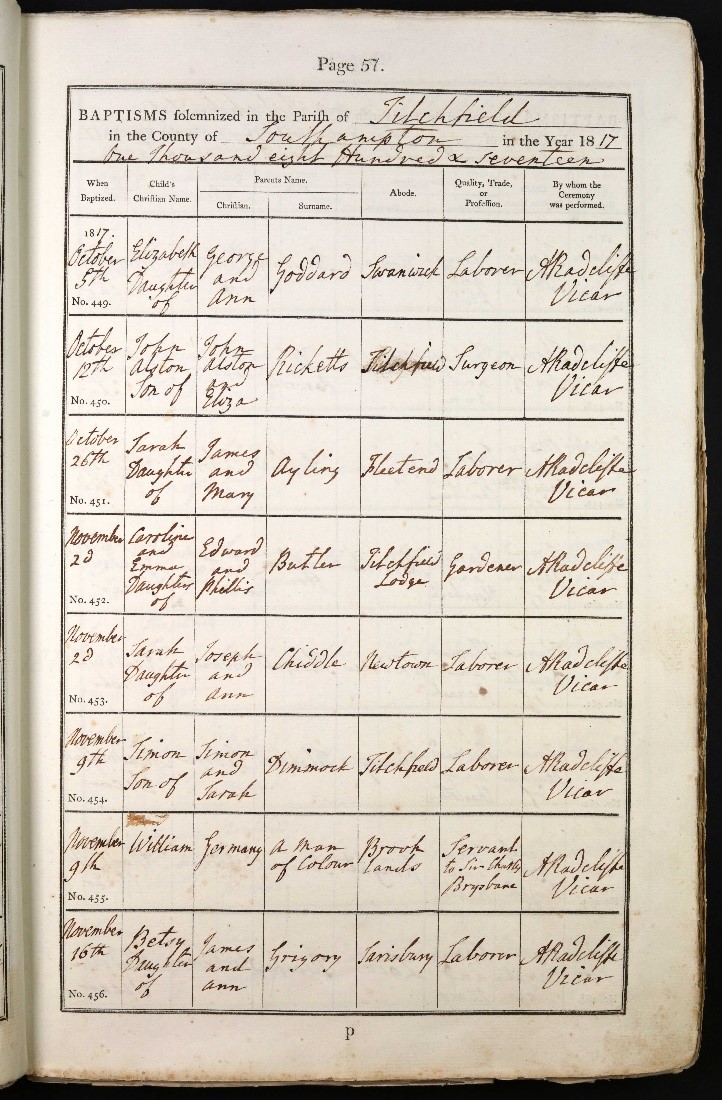 Page 57.
BAPTISMS solemnized in the Parish of Titchfield
in the County of Southampton in the Year 1817
One Thousand eight Hundred & Seventeen
When Baptized. Child's Christian Name. Parents Name. Christian. Surname. Abode. Quality, Trade, or Profession. By whom the Ceremony was performed.
1817.
October 5th No. 449. Elizabeth Daughter of George and Ann Goddard Swanwick Laborer ARadcliffe Vicar
October 12th No. 450. John Alston Son of John Alston and Eliza Ricketts Titchfield Surgeon ARadcliffe Vicar
October 26th No. 451. Sarah Daughter of James and Mary Ayling Fleetend Laborer ARadcliffe Vicar
November 2d No. 452. Caroline and Emma Daughters of Edward and Phillis Butler Titchfield Lodge Gardener ARadcliffe Vicar
November 2d No. 453. Sarah Daughter of Joseph and Ann Chiddle Newtown Laborer ARadcliffe Vicar
November 9th No. 454. Simon Son of Simon and Sarah Dimmock Titchfield Laborer ARadcliffe Vicar
November 9th No. 455. William Germany A Man of Colour Brook lands Servant to Sir Charles Brysbane ARadcliffe Vicar
November 16th No. 456. Betsy Daughter of James and Ann Grigory Sarisbury Laborer ARadcliffe Vicar
P